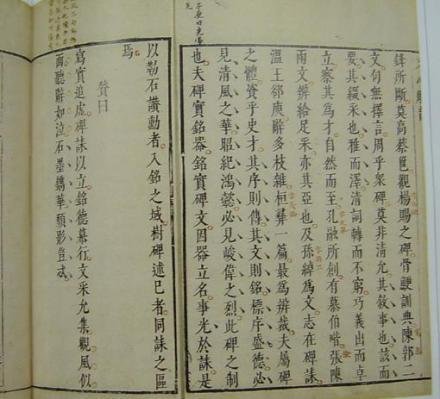 鋒所斷莫高蔡邕觀楊賜之碑骨鯁訓典陳郭二
文句無擇言周乎衆碑莫非清允其敘事也該而
要其綴采也雅而澤清詞轉而不窮巧義出而卓
立察其為才自然而至孔融所創有慕伯喈張陳
兩文辨給足采亦其亞也及孫綽為文志在碑誄
溫王郄庾辭多枝雜桓彝一篇最為辨裁夫屬碑
之體資乎史才其序則傳其文則銘標序盛德必
見清風之華昭紀鴻懿必見峻偉之烈此碑之制
也夫碑實銘器銘實碑文因器立名事光於誄是
以勒石讚勳者入銘之域樹碑述已者同誄之區
焉
贊曰
寫實追虛碑誄以立銘德慕行文采允集觀風似
面聽辭如泣石墨鐫華頹影豈忒